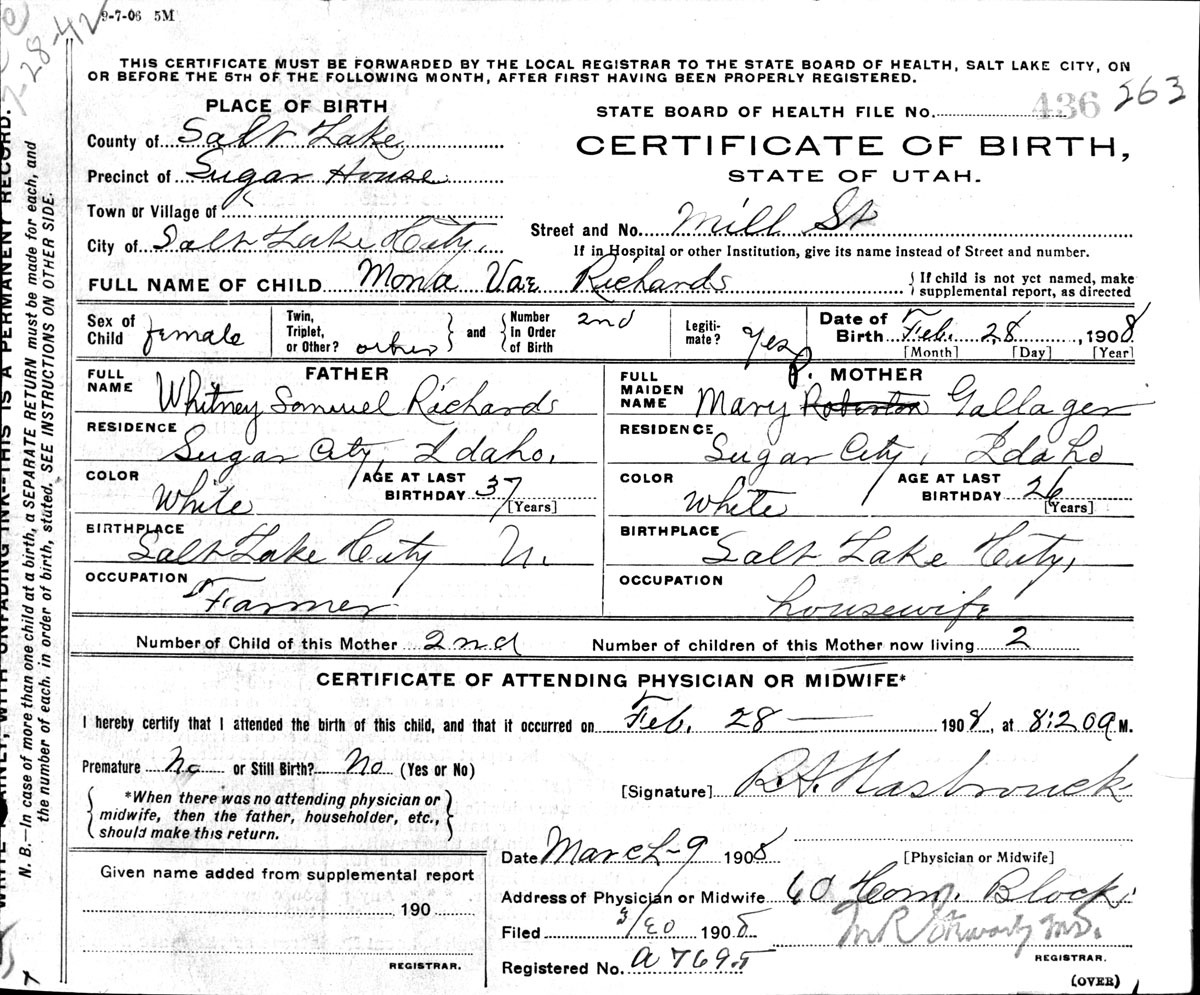 9-7-06 5M
7-28-42
THIS CERTIFICATE MUST BE FORWARDED BY THE LOCAL REGISTRAR TO THE STATE BOARD OF HEALTH, SALT LAKE CITY, ON
OR BEFORE THE 5TH OF THE FOLLOWING MONTH, AFTER FIRST HAVING BEEN PROPERLY REGISTERED.
PLACE OF BIRTH
County of Salt Lake
Precinct of Sugar House
Town or Village of
City of Salt Lake City,
STATE BOARD OF HEALTH FILE No. 436 263
CERTIFICATE OF BIRTH,
STATE OF UTAH.
Street and No. Mill St
If in Hospital or other Institution, give its name instead of Street and number.
FULL NAME OF CHILD Mona Vae Richards
{ If child is not yet named, make
supplemental report, as directed
Sex of Child female
Twin, Triplet, or Other? other } and { Number in Order of Birth 2nd
Legitimate? Yes
Date of Birth Feb. 28, 1908
[Month] [Day] [Year]
FATHER
FULL NAME Whitney Samuel Richards
RESIDENCE
Sugar City, Idaho.
COLOR White AGE AT LAST BIRTHDAY 37 [Years]
BIRTHPLACE
Salt Lake City U.
OCCUPATION
Farmer
MOTHER
FULL MAIDEN NAME Mary P. Roberta Gallager
RESIDENCE
Sugar City, Idaho
COLOR White AGE AT LAST BIRTHDAY 26 [Years]
BIRTHPLACE
Salt Lake City,
OCCUPATION
housewife
Number of Child of this Mother 2nd Number of children of this Mother now living 2
CERTIFICATE OF ATTENDING PHYSICIAN OR MIDWIFE*
I hereby certify that I attended the birth of this child, and that it occurred on Feb. 28 1908, at 8:20 A M.
Premature No or Still Birth? No (Yes or No)
{ *When there was no attending physician or
midwife, then the father, householder, etc.,
should make this return. }
[Signature] R.A. Hasbrouck
[Physician or Midwife]
Date March 9 1908
Address of Physician or Midwife 60 Com. Block
Filed 3/20 1908
Registered No. A 7695
M.D.
REGISTRAR.
(OVER)
Given name added from supplemental report
190
REGISTRAR.
WITH UNFADING INK--THIS IS A PERMANENT RECORD.
N. B.—In case of more than one child at a birth, a SEPARATE RETURN must be made for each, and
the number of each, in order of birth, stated. SEE INSTRUCTIONS ON OTHER SIDE.